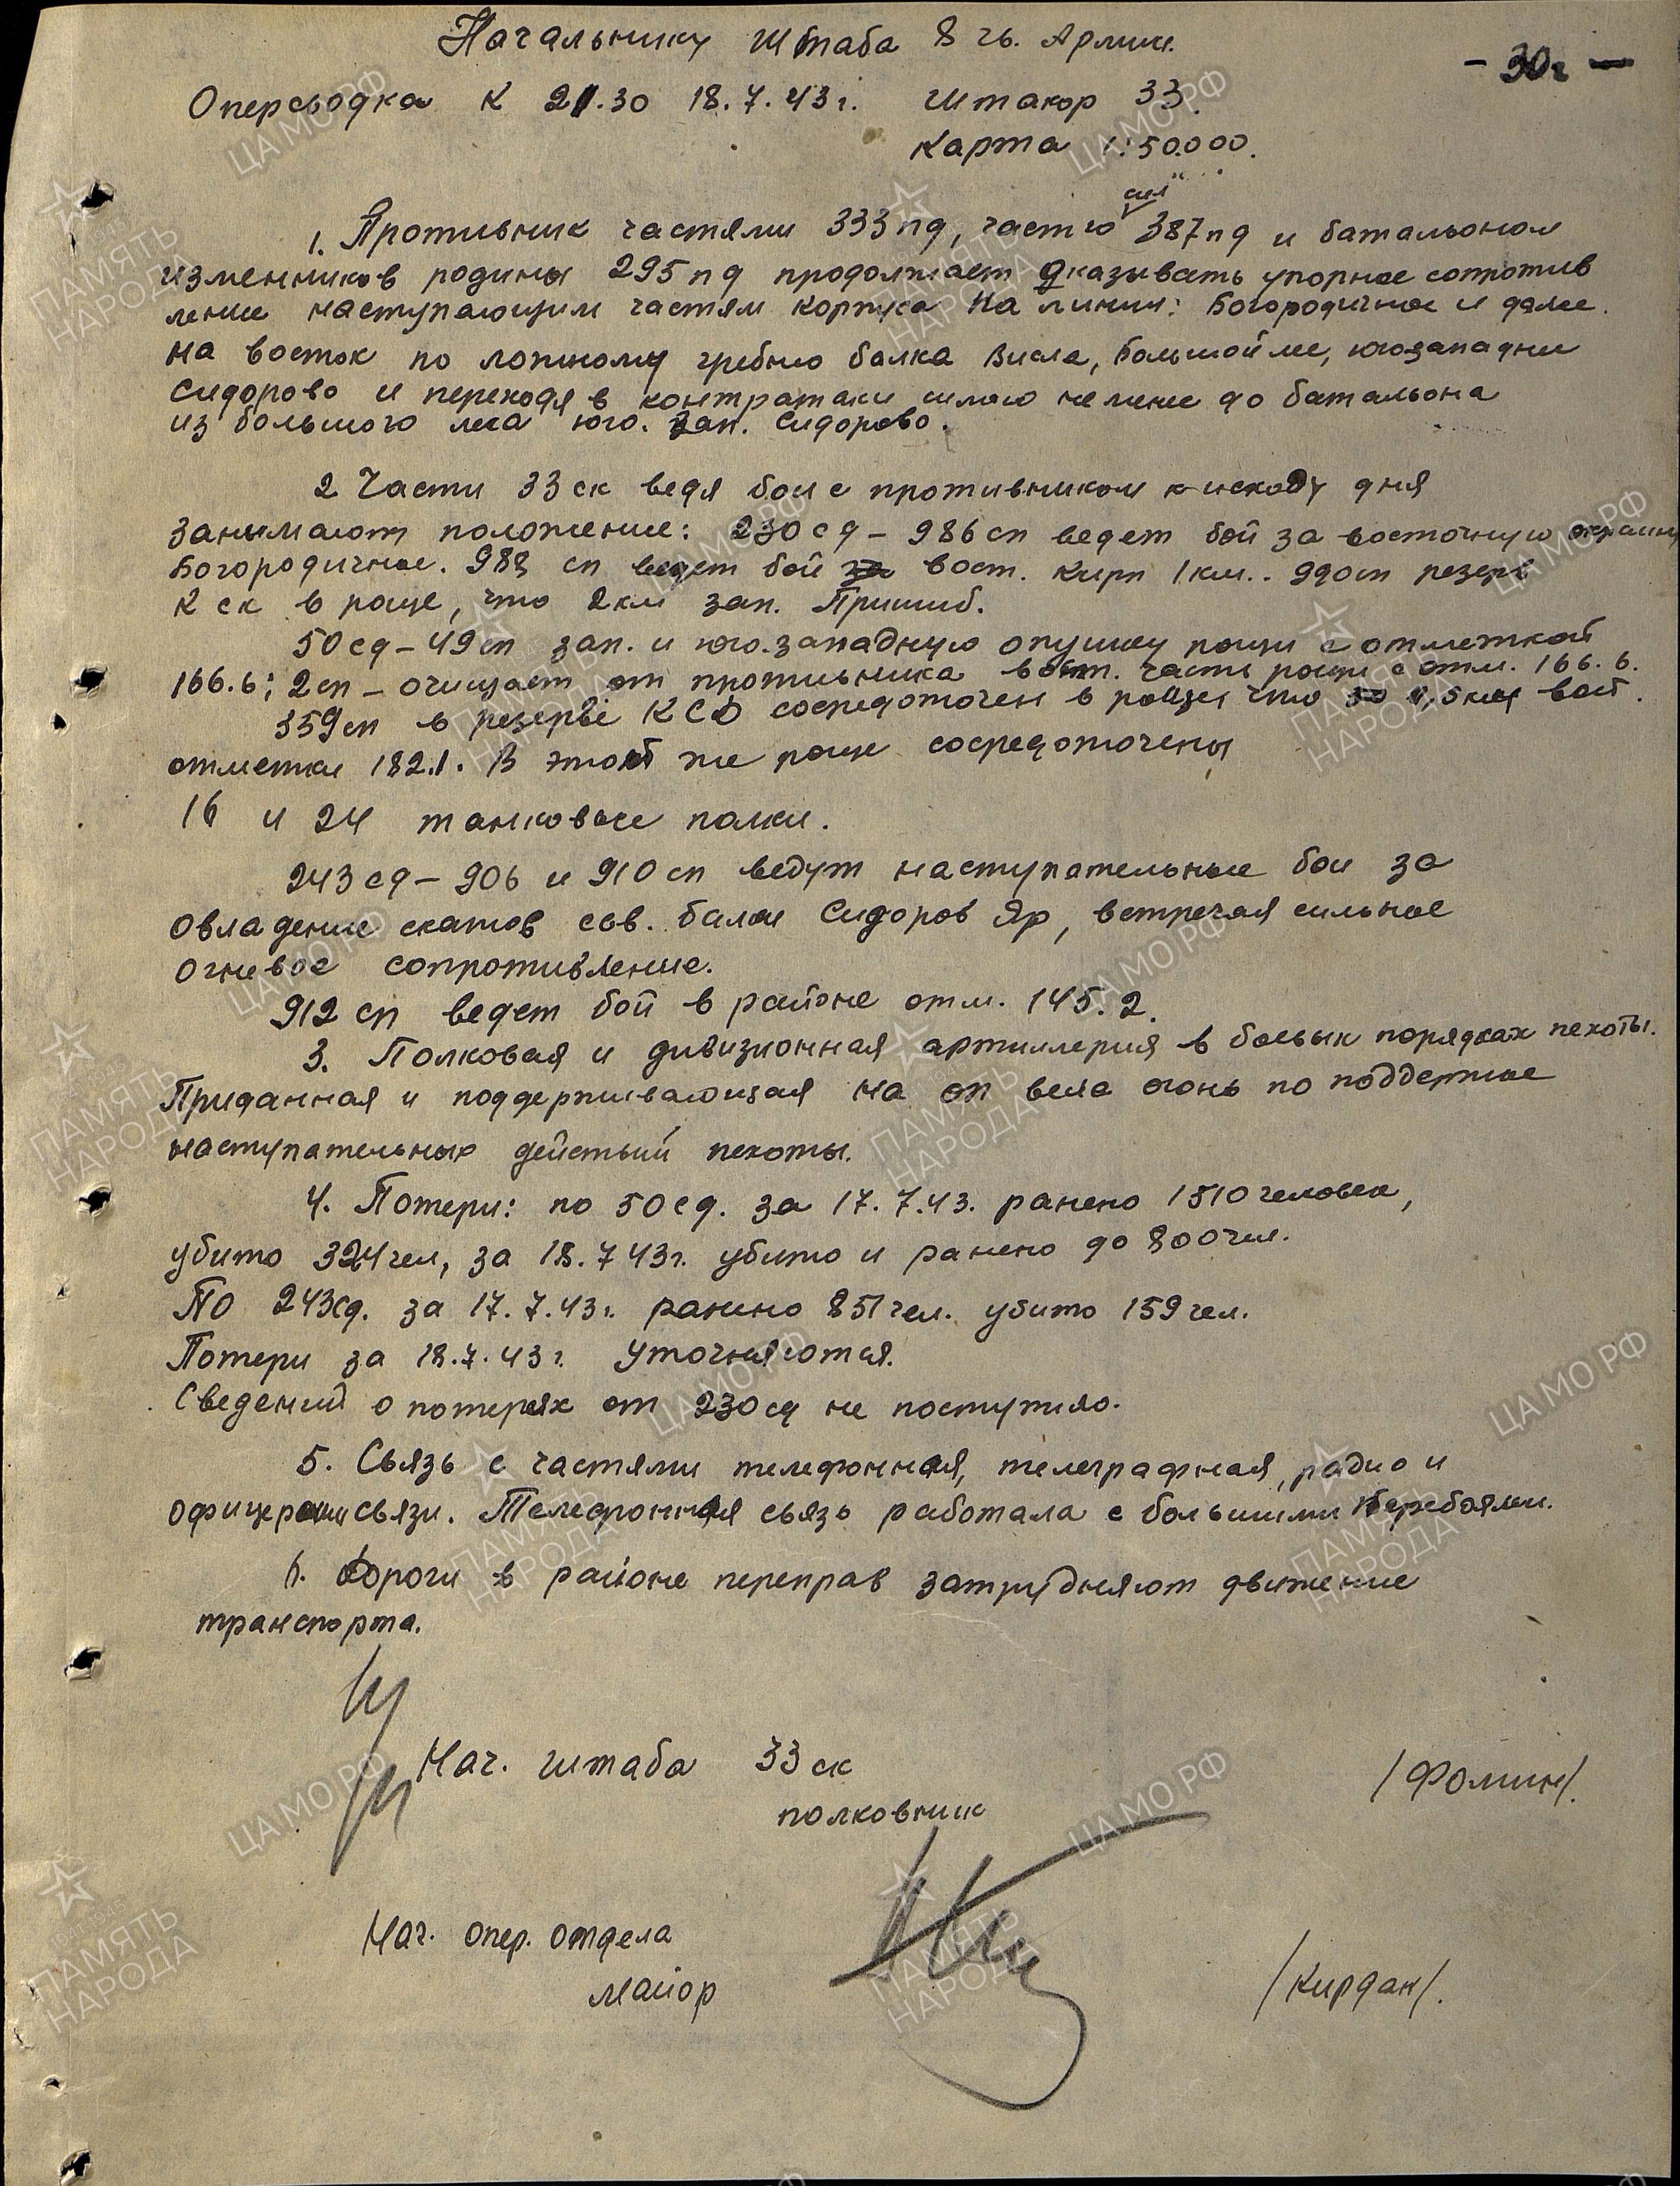 Начальнику штаба 8 гв. Армии.
- 30г -
Оперсводка к 21.30 18.7.43 г. Штакор 33.
Карта 1:50.000.
сил
1. Противник частями 333 пд, частью 387 пд и батальоном
изменников родины 295 пд продолжает оказывать упорное сопротив
ление наступающим частям корпуса на линии: Богородичное и далее
на восток по ложному гребню балка Висла, Большой лес, югозападнее
Сидорово и переходя в контратаки силою не менее до батальона
из большого леса юго. зап. Сидорово.
2 Части 33 ск ведя бои с противником к исходу дня
занимают положение: 230 сд - 986 сп ведет бой за восточную окраину
Богородичное. 988 сп ведет бой за вост. кирп 1 км.. 990 сп резерв
К ск в роще, что 2 км зап. Пришиб.
50 сд - 49 сп зап. и юго.западную опушку рощи с отметкой
166.6; 2 сп - очищает от противника вост. часть рощи с отм. 166.6.
359 сп в резерве КСД сосредоточен в рощи что 1,5 км вост.
отметки 182.1. В этой же роще сосредоточены
16 и 24 танковые полки.
243 сд - 906 и 910 сп ведут наступательные бои за
овладение скатов сев. балки Сидоров Яр, встречая сильное
огневое сопротивление.
912 сп ведет бой в районе отм. 145.2.
3. Полковая и дивизионная артиллерия в боевых порядках пехоты.
Приданная и поддерживающая на оп вела огонь по поддержке
наступательных действий пехоты.
4. Потери: по 50 сд. за 17.7.43. ранено 1510 человек,
убито 324 чел, за 18.7 43г. убито и ранено до 800 чел.
По 243сд. за 17.7.43г. ранено 851 чел. убито 159 чел.
Потери за 18.7.43 г. уточняются.
Сведений о потерях от 230 сд не поступило.
5. Связь с частями телефонная, телеграфная, радио и
офицерами связи. Телефонная связь работала с большими перебоями.
6. Дороги в районе переправ затрудняют движение
транспорта.
Нач. штаба 33 ск
полковник /Фомин/.
Нач. опер. отдела
майор /Кирдан/.
ПАМЯТЬ НАРОДА
ЦА МО РФ